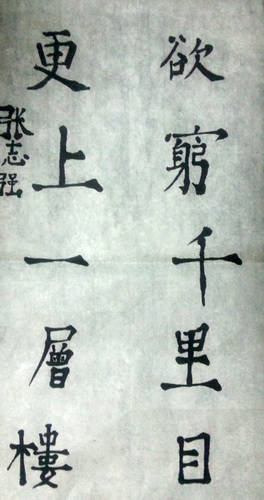 欲窮千里目
更上一層樓
张志强